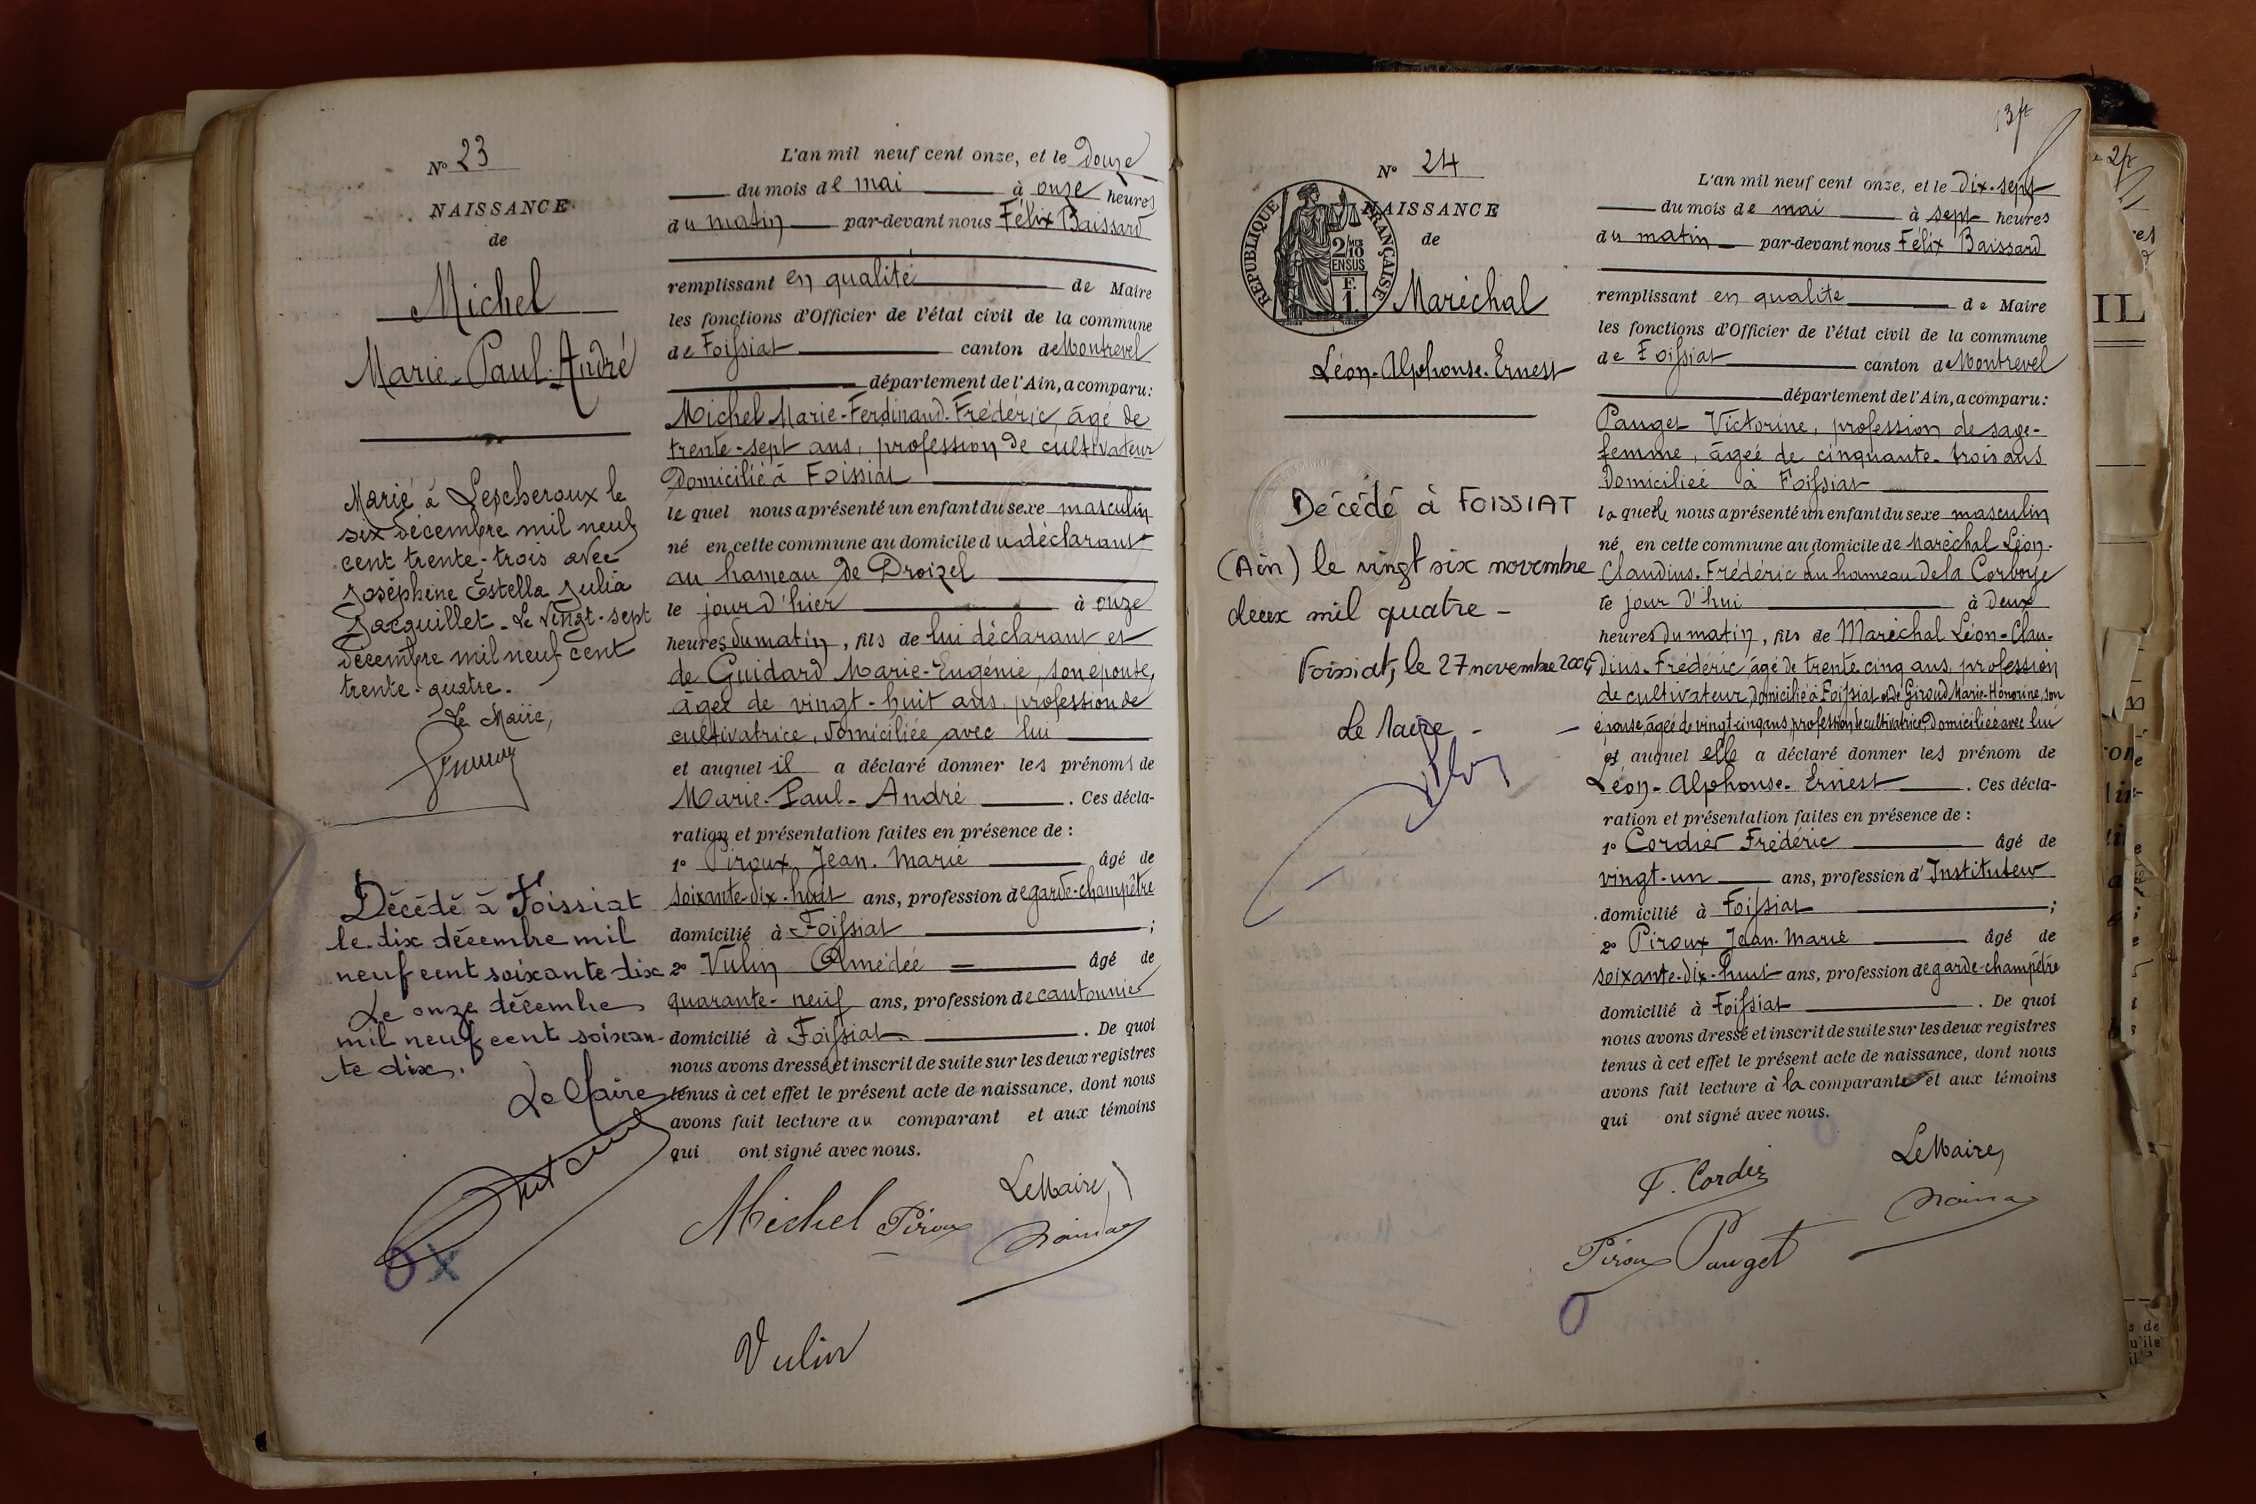 N° 23
NAISSANCE
de
Michel
Marie-Paul-André
Marié à Lescheroux le
six décembre mil neuf
cent trente-trois avec
Joséphine Estella Julia
Jacquillet. Le vingt-sept
décembre mil neuf cent
trente-quatre.
Le Maire,
Décédé à Foissiat
le dix décembre mil
neuf cent soixante dix
Le onze décembre
mil neuf cent soixan-
te dix.
Le Maire
OX
L'an mil neuf cent onze, et le Douze
du mois de mai à onze heures
du matin par-devant nous Félix Baissard
remplissant en qualité de Maire
les fonctions d'Officier de l'état civil de la commune
de Foissiat canton de Montrevel
département de l'Ain, a comparu :
Michel Marie-Ferdinand-Frédéric, âgé de
trente-sept ans, profession de cultivateur
Domicilié à Foissiat
lequel nous a présenté un enfant du sexe masculin
né en cette commune au domicile du déclarant
au hameau de Droizel
le jour d'hier à onze
heures du matin, fils de lui déclarant et
de Guidard Marie-Eugénie, son épouse,
âgée de vingt-huit ans, profession de
cultivatrice, domiciliée avec lui
et auquel il a déclaré donner les prénoms de
Marie-Paul-André . Ces décla-
ration et présentation faites en présence de :
1° Piroux Jean-Marie âgé de
soixante-dix-huit ans, profession de garde-champêtre
domicilié à Foissiat ;
2° Vulin Amédée âgé de
quarante-neuf ans, profession de cantonnier
domicilié à Foissiat . De quoi
nous avons dressé et inscrit de suite sur les deux registres
tenus à cet effet le présent acte de naissance, dont nous
avons fait lecture au comparant et aux témoins
qui ont signé avec nous.
Le Maire,
Michel Piroux
Vulin
N° 24
RÉPUBLIQUE FRANÇAISE
2/10
EN SUS
F.
1.
NAISSANCE
de
Maréchal
Léon-Alphonse-Ernest
Décédé à FOISSIAT
(Ain) le vingt six novembre
deux mil quatre -
Foissiat, le 27 novembre 2004
Le Maire -
L'an mil neuf cent onze, et le dix-sept
du mois de mai à sept heures
du matin par-devant nous Félix Baissard
remplissant en qualité de Maire
les fonctions d'Officier de l'état civil de la commune
de Foissiat canton de Montrevel
département de l'Ain, a comparu :
Pauget Victorine, profession de sage-
femme, âgée de cinquante-trois ans
Domiciliée à Foissiat
laquelle nous a présenté un enfant du sexe masculin
né en cette commune au domicile de Maréchal Léon-
Claudius-Frédéric au hameau de la Corboye
le jour d'hui à deux
heures du matin, fils de Maréchal Léon-Clau-
dius-Frédéric âgé de trente cinq ans, profession
de cultivateur, domicilié à Foissiat et de Giroud Marie-Honorine, son
épouse, âgée de vingt-cinq ans, profession de cultivatrice Domiciliée avec lui
et auquel elle a déclaré donner les prénom de
Léon-Alphonse-Ernest . Ces décla-
ration et présentation faites en présence de :
1° Cordier Frédéric âgé de
vingt-un ans, profession d'Instituteur
domicilié à Foissiat ;
2° Piroux Jean-Marie âgé de
soixante-dix-huit ans, profession de garde-champêtre
domicilié à Foissiat . De quoi
nous avons dressé et inscrit de suite sur les deux registres
tenus à cet effet le présent acte de naissance, dont nous
avons fait lecture à la comparante et aux témoins
qui ont signé avec nous.
Le Maire,
F. Cordier
Piroux Pauget
O
IL